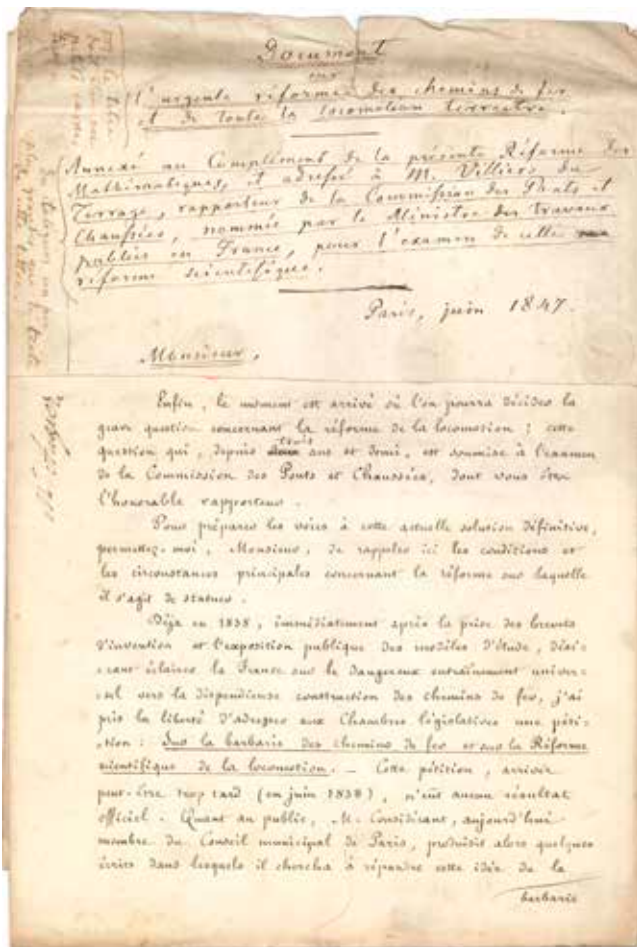 Document
sur
l'urgente réforme des chemins de fer
et de toute la locomotion terrestre.
Annexé au Complément de la présente Réforme des
Mathématiques, et adressé à M. Villiers du
Terrage, rapporteur de la Commission des Ponts et
Chaussées, nommée par le Ministre des travaux
publics en France, pour l'examen de cette
réforme scientifique.
Paris, juin 1847.
Monsieur,
Enfin, le moment est arrivé où l'on pourra décider la
grave question concernant la réforme de la locomotion ; cette
question qui, depuis trois ans et demi, est soumise à l'examen
de la Commission des Ponts et Chaussées, dont vous êtes
l'honorable rapporteur.
Pour préparer les voies à cette actuelle solution définitive,
permettez-moi, Monsieur, de rappeler ici les conditions et
les circonstances principales concernant la réforme sur laquelle
il s'agit de statuer.
Déjà en 1838, immédiatement après la prise des brevets
d'invention et l'exposition publique des modèles d'étude, dési-
-rant éclairer la France sur le dangereux entraînement univer-
-sel vers la dispendieuse construction des chemins de fer, j'ai
pris la liberté d'adresser aux Chambres législatives une péti-
-tion : Sur la barbarie des chemins de fer et sur la Réforme
scientifique de la locomotion. — Cette pétition, arrivée
peut-être trop tard (en juin 1838), n'eût aucun résultat
officiel. Quant au public, M. Considérant, aujourd'hui
membre du Conseil municipal de Paris, produisit alors quelques
écrits dans lesquels il chercha à répandre cette idée de la
barbarie